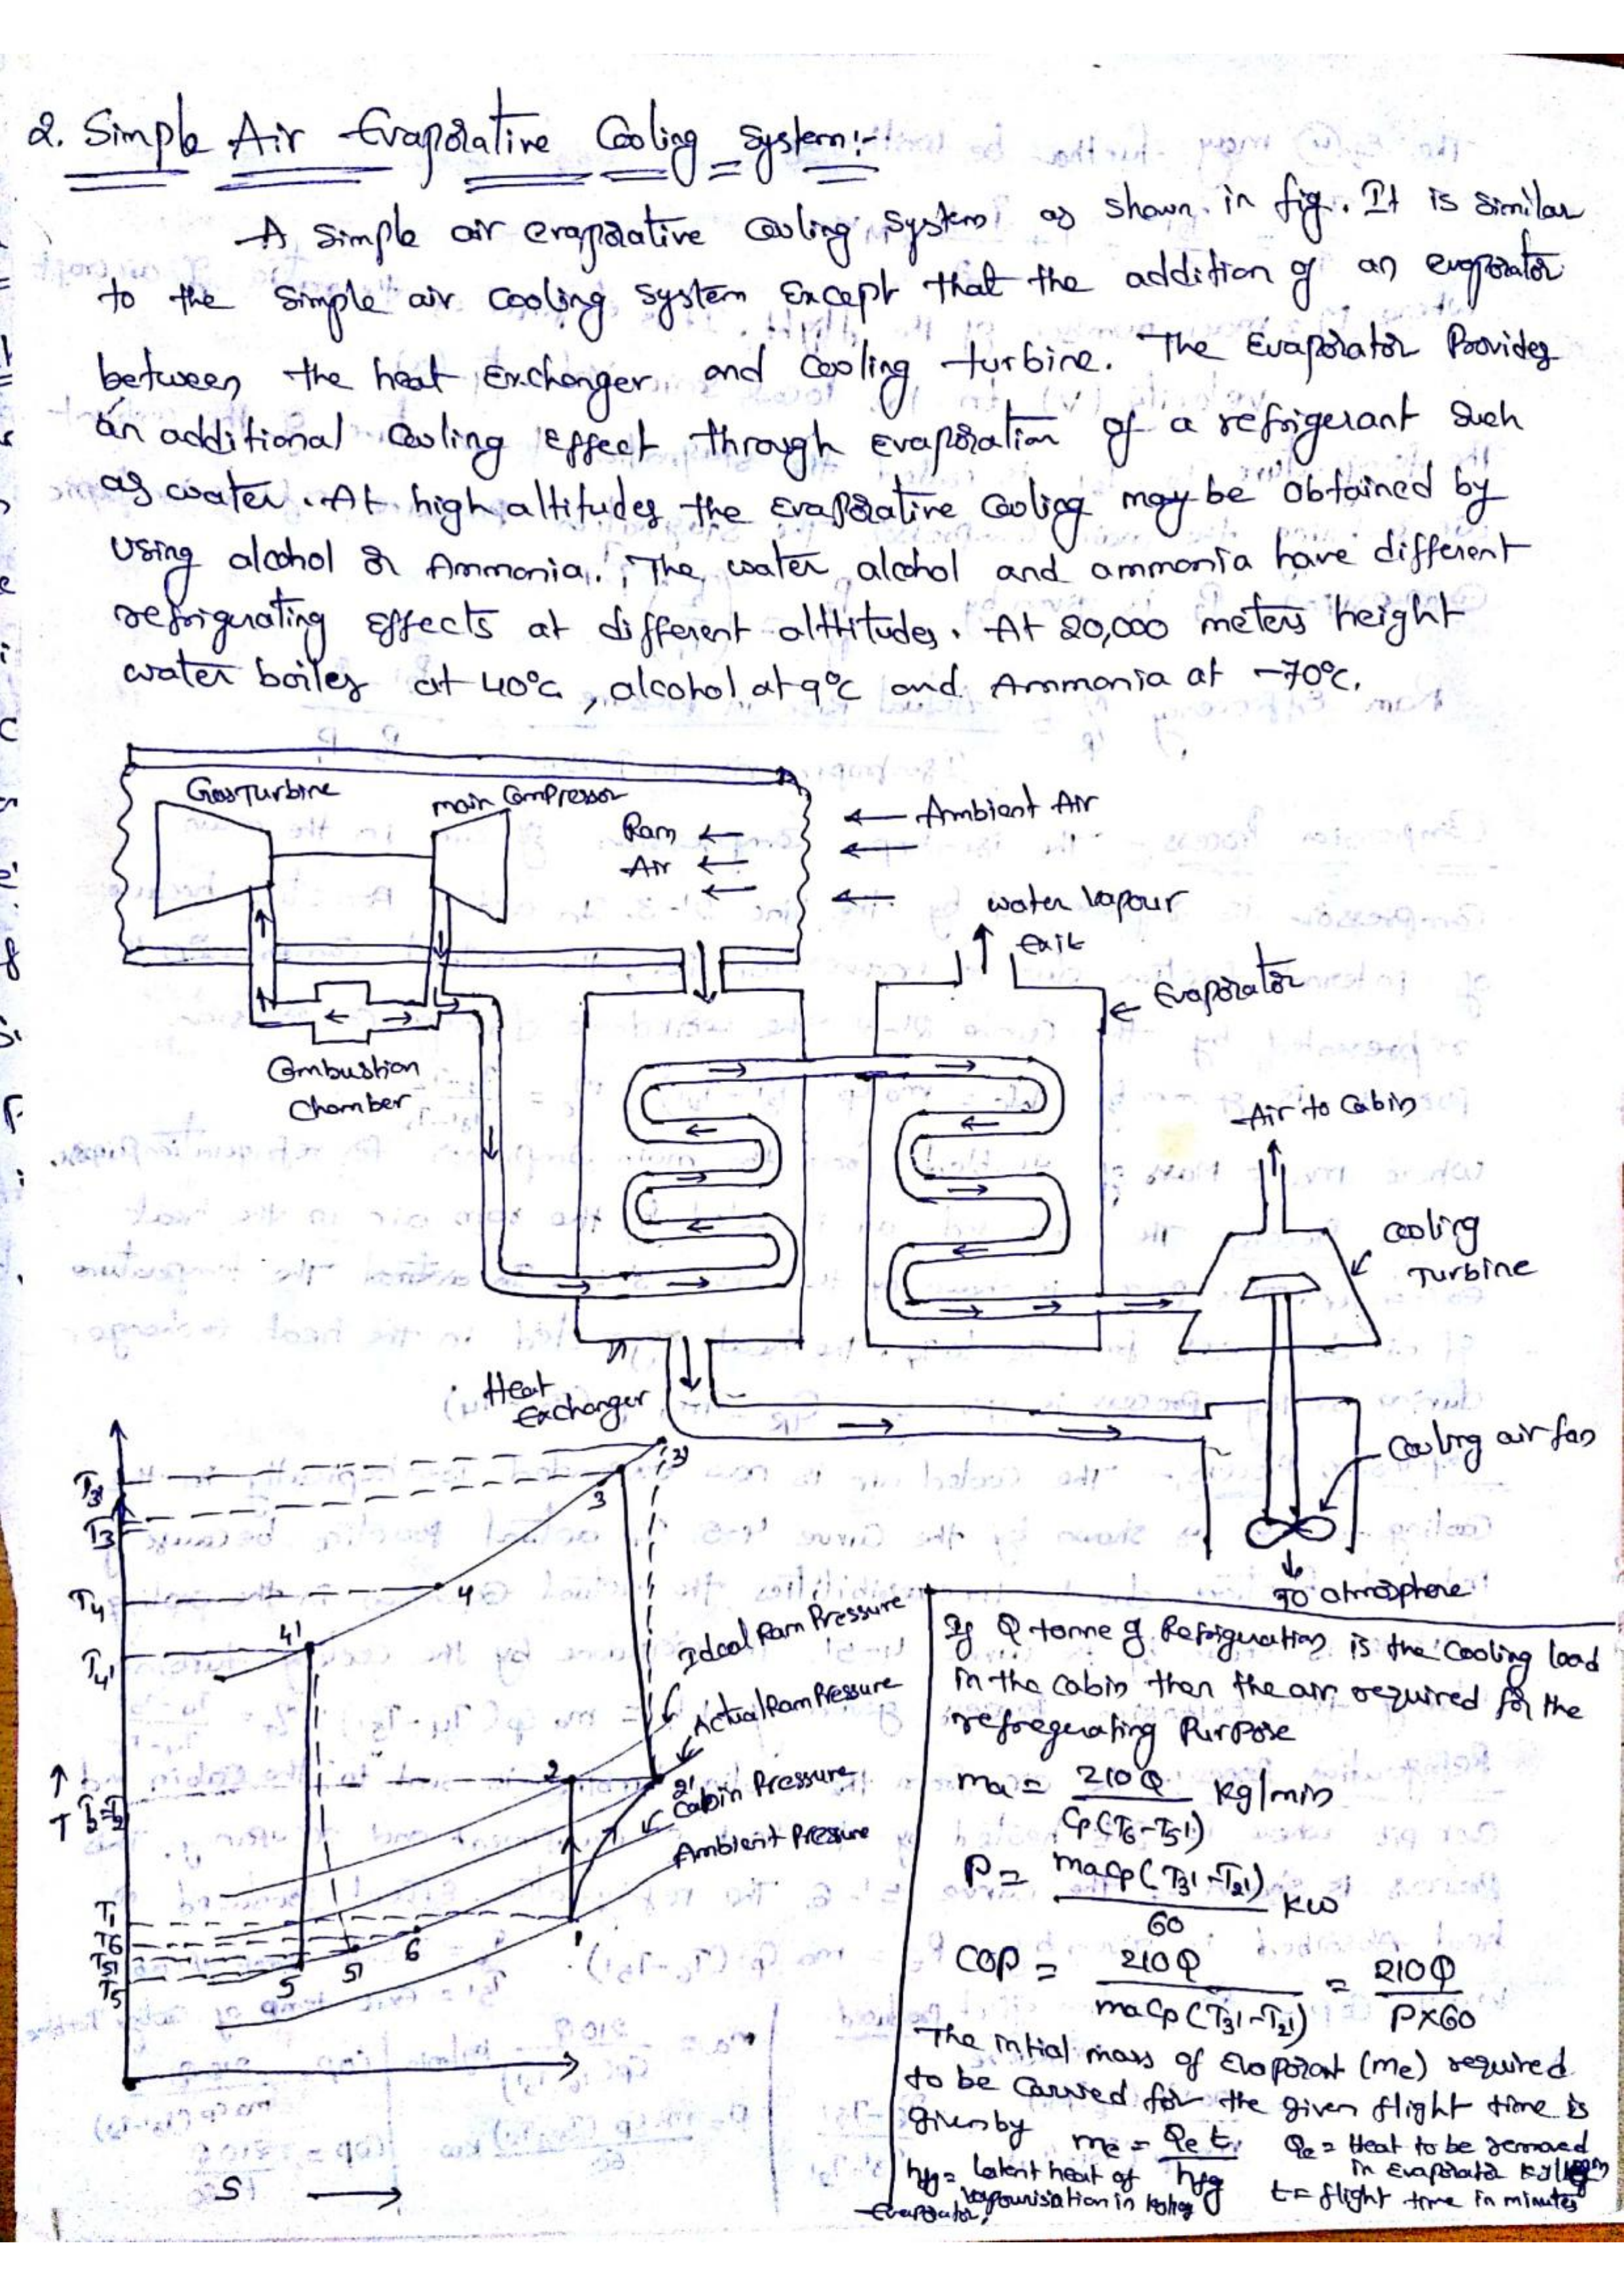 2. Simple Air Evaporative Cooling System:-
A simple air evaporative cooling system as shown in fig. It is similar
to the simple air cooling system Except that the addition of an evaporator
between the heat Exchanger and Cooling turbine. The Evaporator Provides
an additional cooling Effect through Evaporation of a refrigerant such
as water. At high altitudes the Evaporative Cooling may be obtained by
using alcohol or Ammonia. The water alcohol and ammonia have different
refrigerating Effects at different altitudes. At 20,000 meters height
water boiles at 40°c, alcohol at 9°c and Ammonia at -70°c.
Gas Turbine
main Compressor
Ram
Air
Ambient Air
water vapour
exit
Evaporator
Combustion
Chamber
Air to Cabin
cooling
Turbine
Heat
Exchanger
Cooling air fan
To atmosphere
T3'
T3
T4
T4'
3'
3
4
4'
Ideal Ram Pressure
Actual Ram Pressure
Cabin Pressure
Ambient Pressure
2
2'
T
T2=T2'
T1
T6
T5'
T5
5
5'
6
1
S
If Q tonne of Refrigeration is the Cooling load
in the cabin then the air required for the
refregerating Purpose
ma = 210Q / Cp(T6-T5') Kg/min
P = maCp(T3'-T2') / 60 KW
COP = 210Q / maCp(T3'-T2') = 210Q / P×60
The intial mass of Evaporant (me) required
to be carried for the given flight time is
given by me = Qe t / hfg
Qe = Heat to be removed
in Evaporator
hfg = Latent heat of
vapourisation in
Evaporator,
t = flight time in minutes